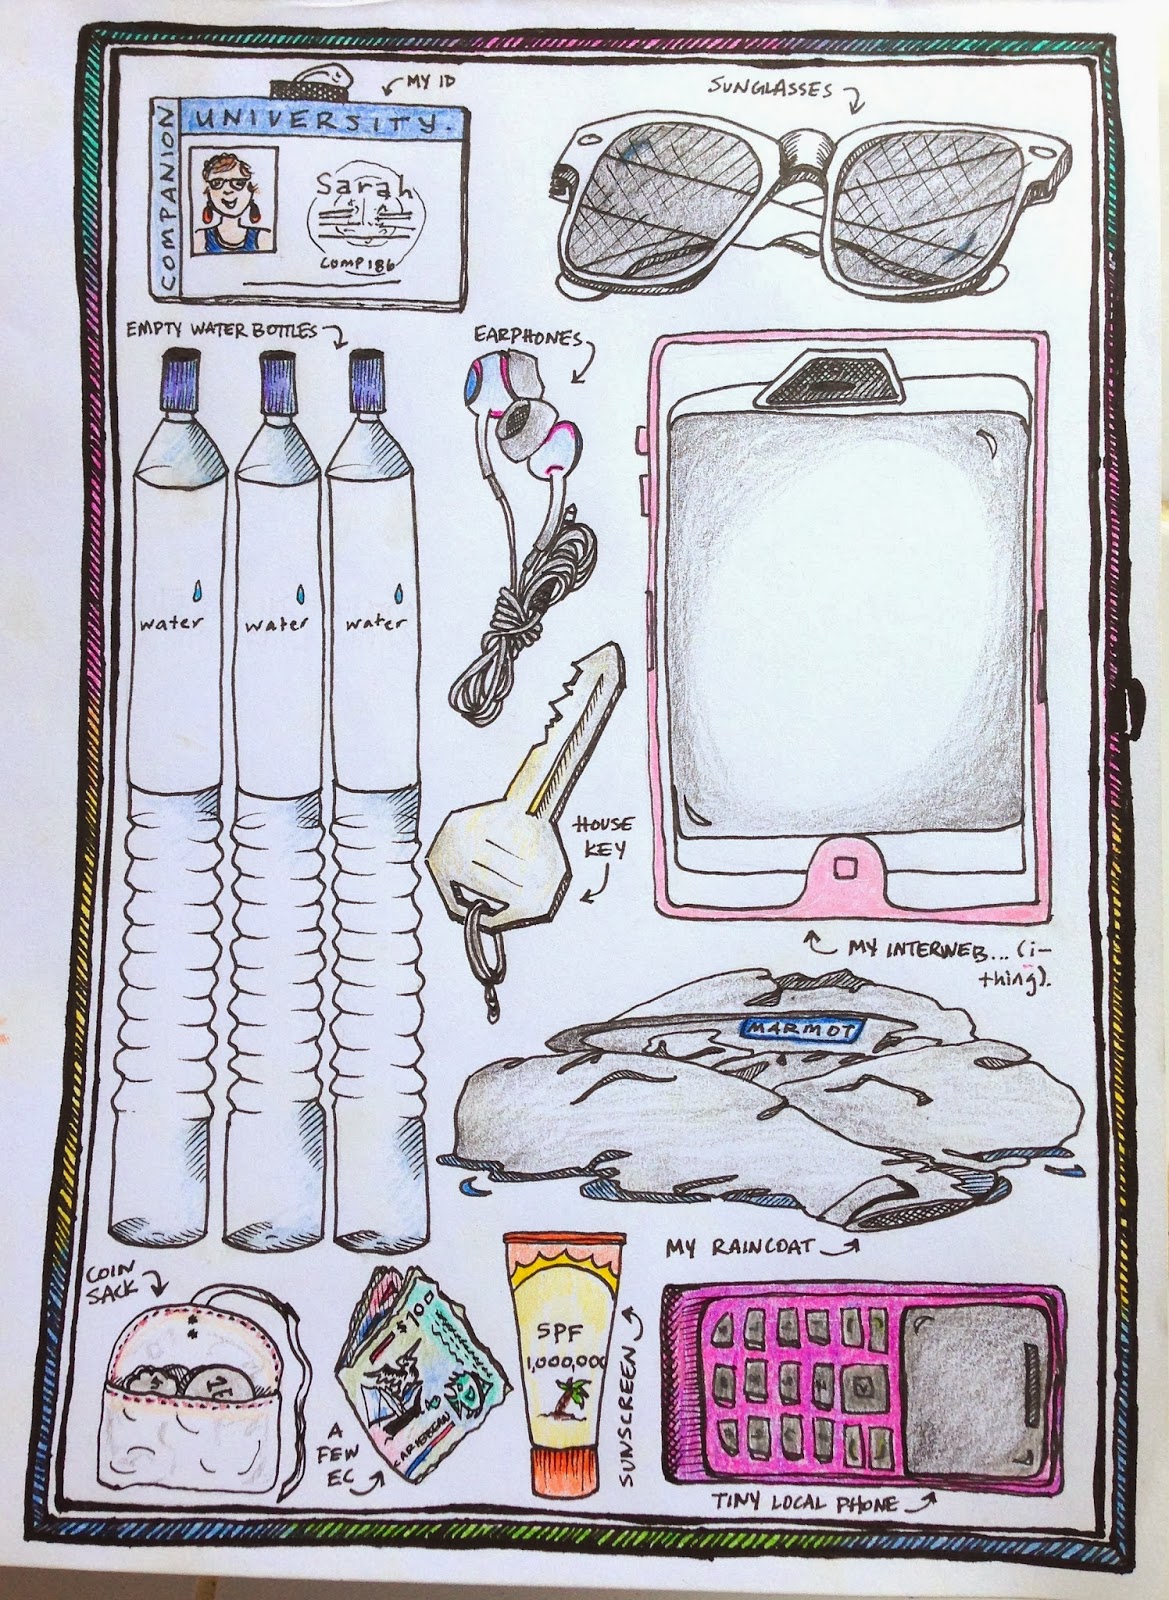 MY ID
SUNGLASSES
COMPANION
UNIVERSITY.
Sarah
COMP186
EMPTY WATER BOTTLES
EARPHONES
water
water
water
HOUSE
KEY
MY INTERWEB... (i-
thing).
MARMOT
MY RAINCOAT
COIN
SACK
$100
CARIBBEAN
A
FEW
EC
SPF
1,000,000
SUNSCREEN
TINY LOCAL PHONE